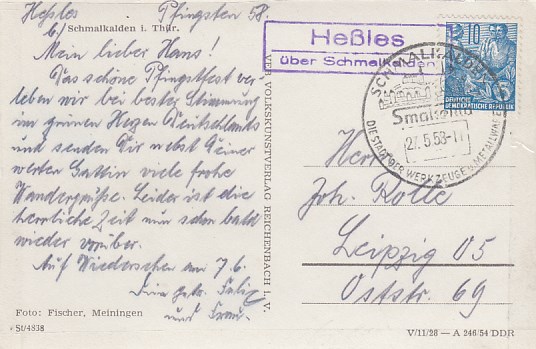 Heßles Pfingsten 58.
b/ Schmalkalden i. Thür.
Mein lieber Hans!
Das schöne Pfingstfest ver-
leben wir bei bester Stimmung
im grünen Herzen Deutschlands
und senden Dir nebst Deiner
werten Gattin viele frohe
Wandergrüße. Leider ist die
herrliche Zeit nun schon bald
wieder vorüber.
Auf Wiedersehen am 7.6.
Dein
und Frau.
Foto: Fischer, Meiningen
St/4838
VEB VOLKSKUNSTVERLAG REICHENBACH I. V.
Heßles
über Schmalkalden
10
DEUTSCHE
DEMOKRATISCHE REPUBLIK
SCHMALKALDEN
Smalcalda
27.5.58-
DIE STADT DER WERKZEUGE METALLWAREN
Herrn
Joh. Kolle
Leipzig O5
Oststr. 69
V/11/28 — A 246/54 DDR